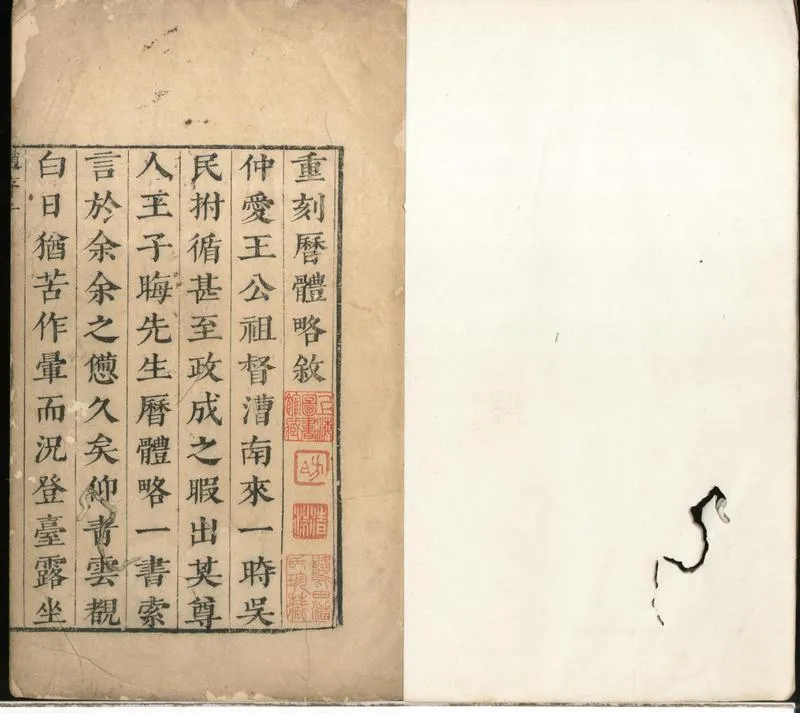 重刻曆體略敘
仲愛王公祖督漕南來一時吳
民拊循甚至政成之暇出其尊
人王子晦先生曆體略一書索
言於余余之憊久矣仰青雲覩
白日猶苦作暈而況登臺露坐
上海圖書館藏